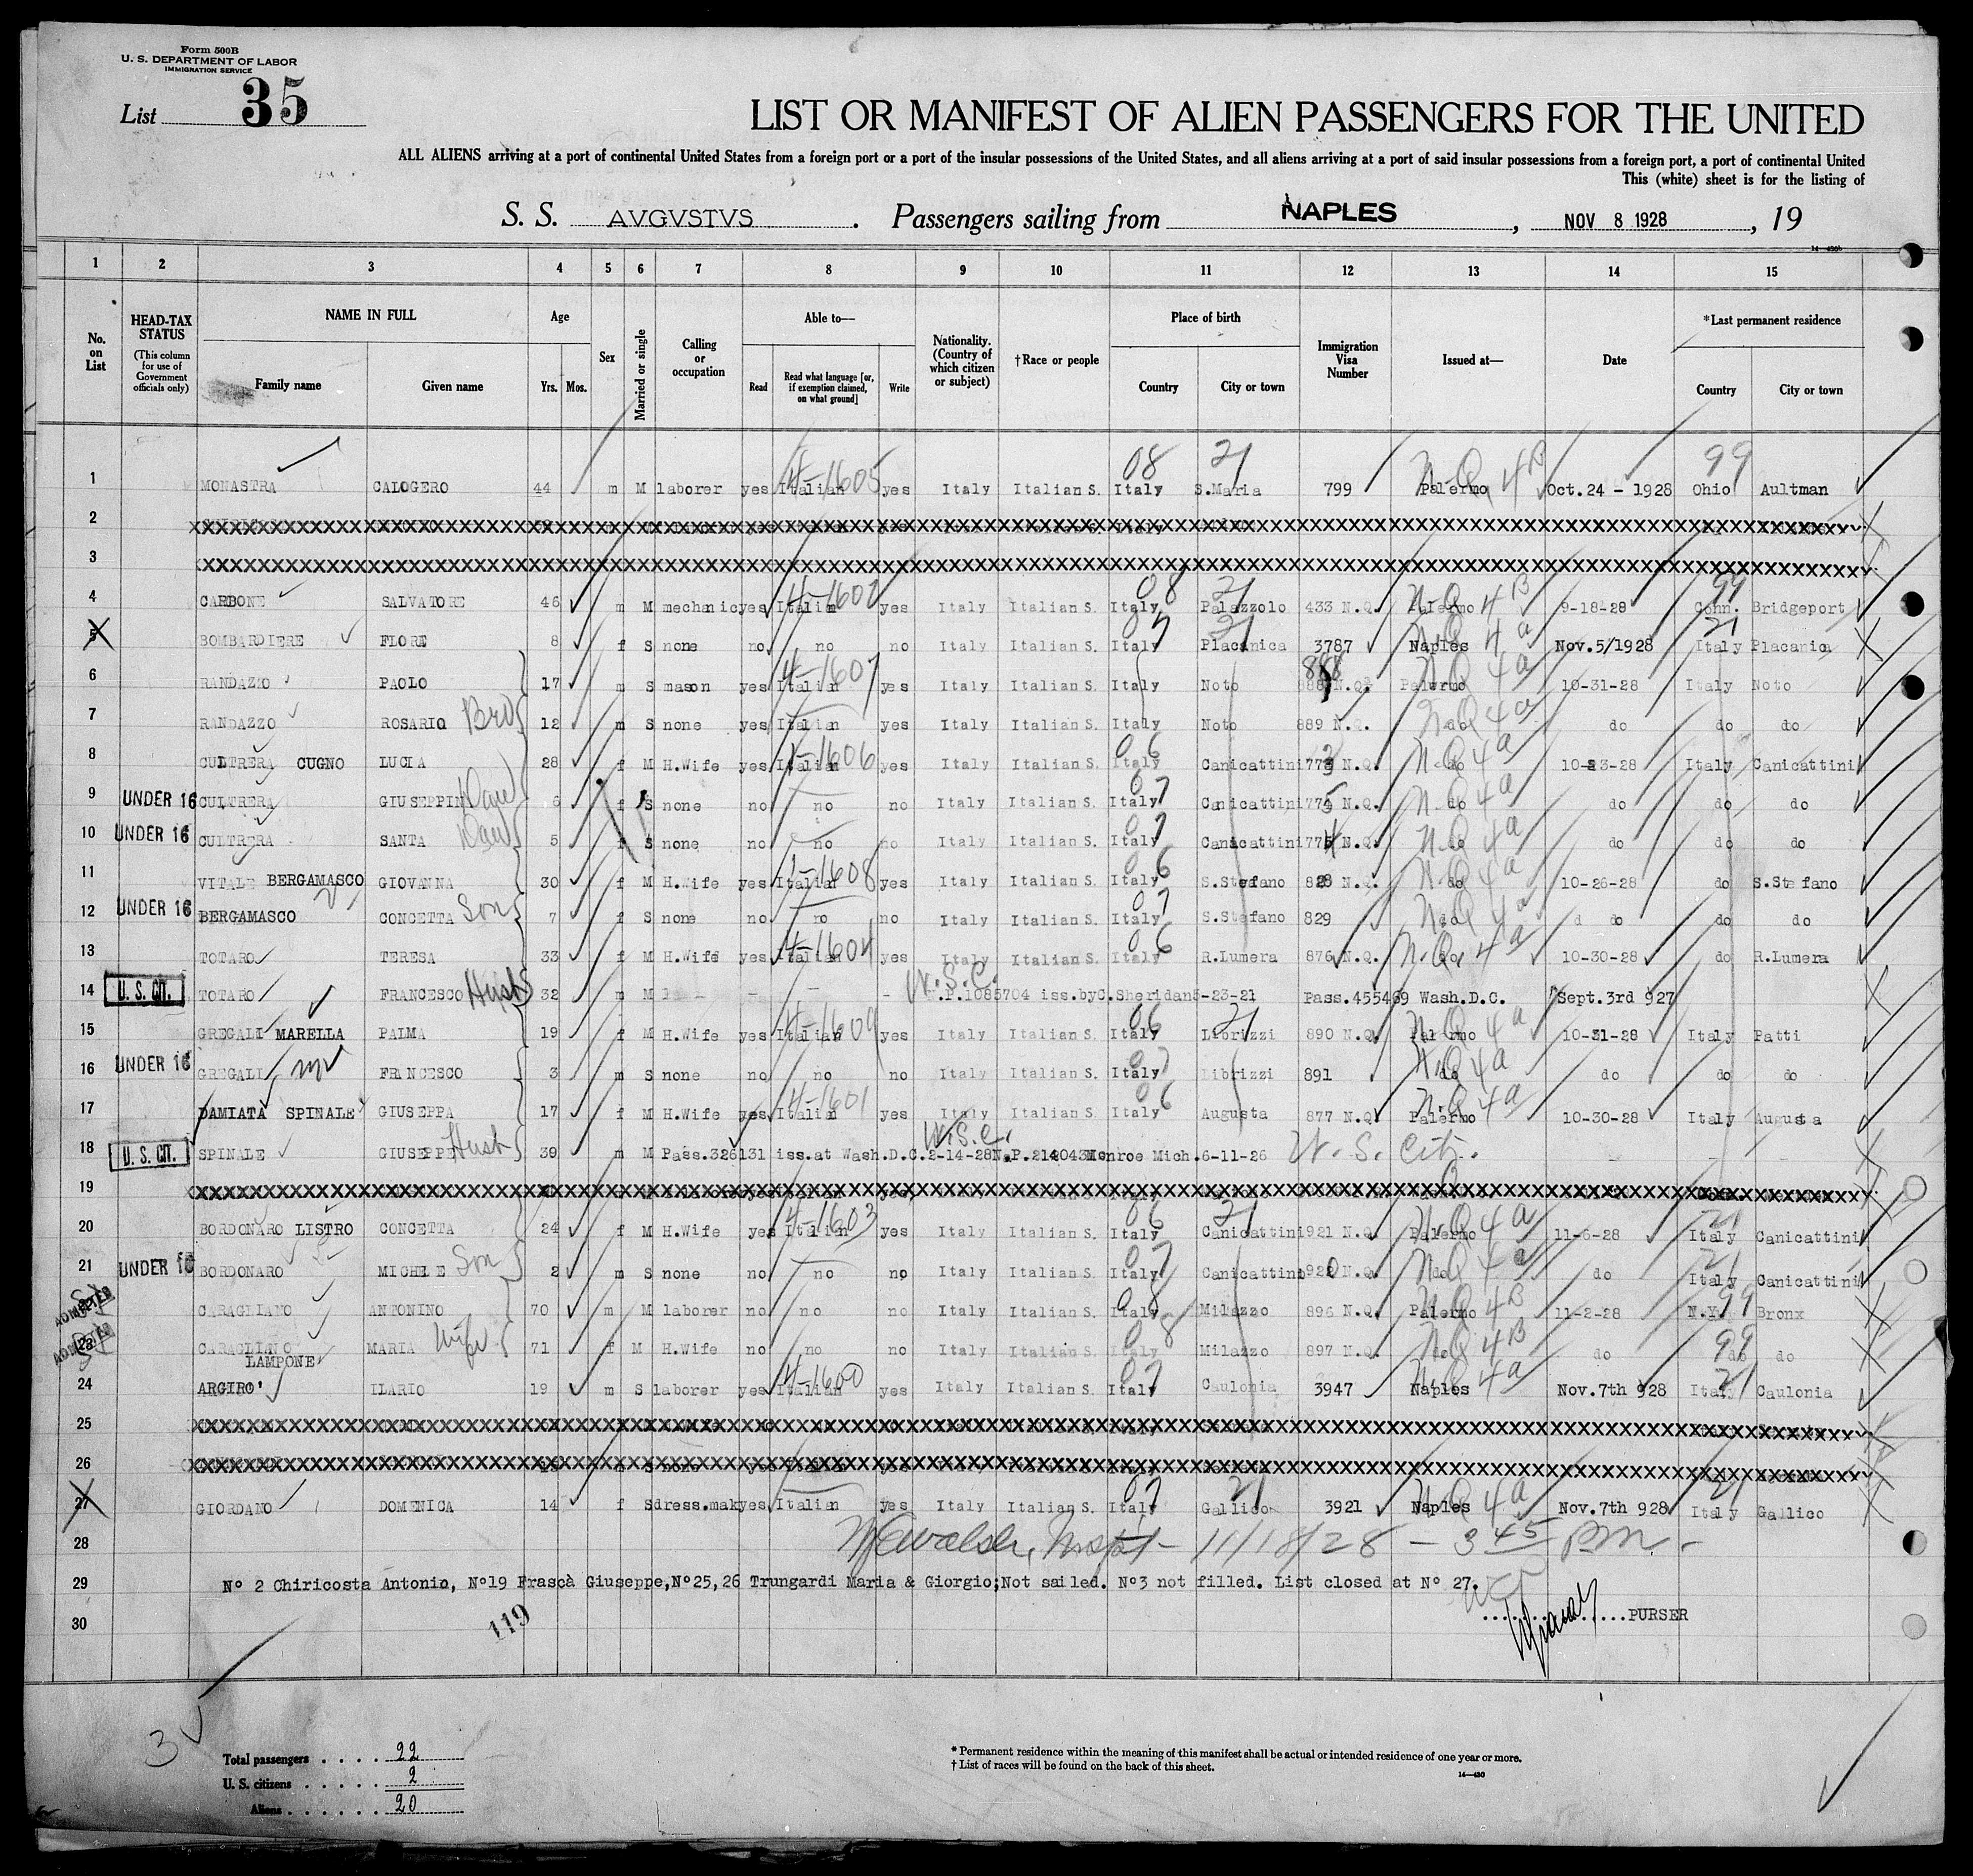 Form 500B
U. S. DEPARTMENT OF LABOR
IMMIGRATION SERVICE
List 35
LIST OR MANIFEST OF ALIEN PASSENGERS FOR THE UNITED
ALL ALIENS arriving at a port of continental United States from a foreign port or a port of the insular possessions of the United States, and all aliens arriving at a port of said insular possessions from a foreign port, a port of continental United
This (white) sheet is for the listing of
S. S. AVGVSTVS. Passengers sailing from NAPLES, NOV 8 1928, 19
14—430b
1 2 3 4 5 6 7 8 9 10 11 12 13 14 15
No. on List
HEAD-TAX STATUS (This column for use of Government officials only)
NAME IN FULL
Family name Given name
Age
Yrs. Mos.
Sex
Married or single
Calling or occupation
Able to—
Read Read what language [or, if exemption claimed, on what ground] Write
Nationality. (Country of which citizen or subject)
†Race or people
Place of birth
Country City or town
Immigration Visa Number
Issued at—
Date
*Last permanent residence
Country City or town
1 MONASTRA CALOGERO 44 m M laborer yes Italian 4-1605 yes Italy Italian S. Italy 08 S.Maria 21 799 Palermo N.Q. 4B Oct.24 - 1928 Ohio 99 Aultman
2
3
4 CARBONE SALVATORE 46 m M mechanic yes Italian 4-1602 yes Italy Italian S. Italy 08 Palazzolo 21 433 N.Q. Palermo N.Q. 4B 9-18-28 Conn. 99 Bridgeport
5 BOMBARDIERE FLORE 8 f S none no no no Italy Italian S. Italy 07 Placanica 21 3787 Naples N.Q. 4a Nov.5/1928 Italy 21 Placanica
6 RANDAZZO PAOLO 17 m S mason yes Italian 4-1607 yes Italy Italian S. Italy Noto 888 N.Q. Palermo N.Q. 4a 10-31-28 Italy Noto
7 RANDAZZO ROSARIO Bro 12 m S none yes Italian yes Italy Italian S. Italy Noto 889 N.Q. do N.Q. 4a do do do
8 CULTRERA CUGNO LUCIA 28 f M H.Wife yes Italian 1-1606 yes Italy Italian S. Italy 06 Canicattini 773 N.Q. do N.Q. 4a 10-23-28 Italy Canicattini
9 UNDER 16 CULTRERA GIUSEPPINA Dau 6 f S none no no no Italy Italian S. Italy 07 Canicattini N.Q. do N.Q. 4a do do do
10 UNDER 16 CULTRERA SANTA Dau 5 f S none no no no Italy Italian S. Italy 07 Canicattini N.Q. do N.Q. 4a do do do
11 VITALE BERGAMASCO GIOVANNA 30 f M H.Wife yes Italian 1-1608 yes Italy Italian S. Italy 06 S.Stefano 828 N.Q. do N.Q. 4a 10-26-28 do S.Stefano
12 UNDER 16 BERGAMASCO CONCETTA Son 7 f S none no no no Italy Italian S. Italy 07 S.Stefano 829 do N.Q. 4a do do do
13 TOTARO TERESA 33 f M H.Wife yes Italian 4-1604 yes Italy Italian S. Italy 06 R.Lumera 876 N.Q. do N.Q. 4a 10-30-28 do R.Lumera
14 U. S. CIT. TOTARO FRANCESCO Husb 32 m M - - - U.S.C. N.P.1085704 iss.byC.Sheridan5-23-21 Pass.455469 Wash.D.C. Sept.3rd 927
15 GREGALI MARELLA PALMA 19 f M H.Wife yes Italian 4-1609 yes Italy Italian S. Italy 06 Librizzi 21 890 N.Q. Palermo N.Q. 4a 10-31-28 Italy Patti
16 UNDER 16 GREGALI FRANCESCO 3 m S none no no no Italy Italian S. Italy 07 Librizzi 891 do N.Q. 4a do do do
17 DAMIATA SPINALE GIUSEPPA 17 f M H.Wife yes Italian 4-1601 yes Italy Italian S. Italy 06 Augusta 877 N.Q. Palermo N.Q. 4a 10-30-28 Italy Augusta
18 U. S. CIT. SPINALE GIUSEPPE Husb 39 m M Pass.326131 iss.at Wash.D.C.2-14-28 U.S.C. N.P.2140431 Monroe Mich.6-11-26 U.S. Citz.
19
20 BORDONARO LISTRO CONCETTA 24 f M H.Wife yes Italian 4-1603 yes Italy Italian S. Italy 06 Canicattini 21 921 N.Q. Palermo N.Q. 4a 11-6-28 Italy 21 Canicattini
21 UNDER 16 BORDONARO MICHELE Son 2 m S none no no no Italy Italian S. Italy 07 Canicattini N.Q. do N.Q. 4a do Italy 21 Canicattini
ADMITTED CARAGLIANO ANTONINO 70 m M laborer no no no Italy Italian S. Italy 08 Milazzo 896 N.Q. Palermo N.Q. 4B 11-2-28 N.Y. 99 Bronx
ADMITTED 23 CARAGLIANO LAMPONE MARIA Wife 71 f M H.Wife no no no Italy Italian S. Italy 08 Milazzo 897 N.Q. do N.Q. 4B do do 99 do
24 ARGIRO' ILARIO 19 m S laborer yes Italian 4-1600 yes Italy Italian S. Italy 07 Caulonia 3947 Naples N.Q. 4a Nov.7th 928 Italy 21 Caulonia
25
26
27 GIORDANO DOMENICA 14 f S dress.mak yes Italian yes Italy Italian S. Italy 07 Gallico 21 3921 Naples N.Q. 4a Nov.7th 928 Italy 21 Gallico
28 Walsh, Inspt - 11/18/28 - 3 45 PM.
29 Nº 2 Chiricosta Antonio, Nº19 Frascà Giuseppe,Nº25,26 Trungardi Maria & Giorgio;Not sailed. Nº3 not filled. List closed at Nº 27.
30 PURSER
119
3
Total passengers . . . . 22
U. S. citizens . . . . . . 2
Aliens . . . . . . . 20
* Permanent residence within the meaning of this manifest shall be actual or intended residence of one year or more.
† List of races will be found on the back of this sheet.
14—430